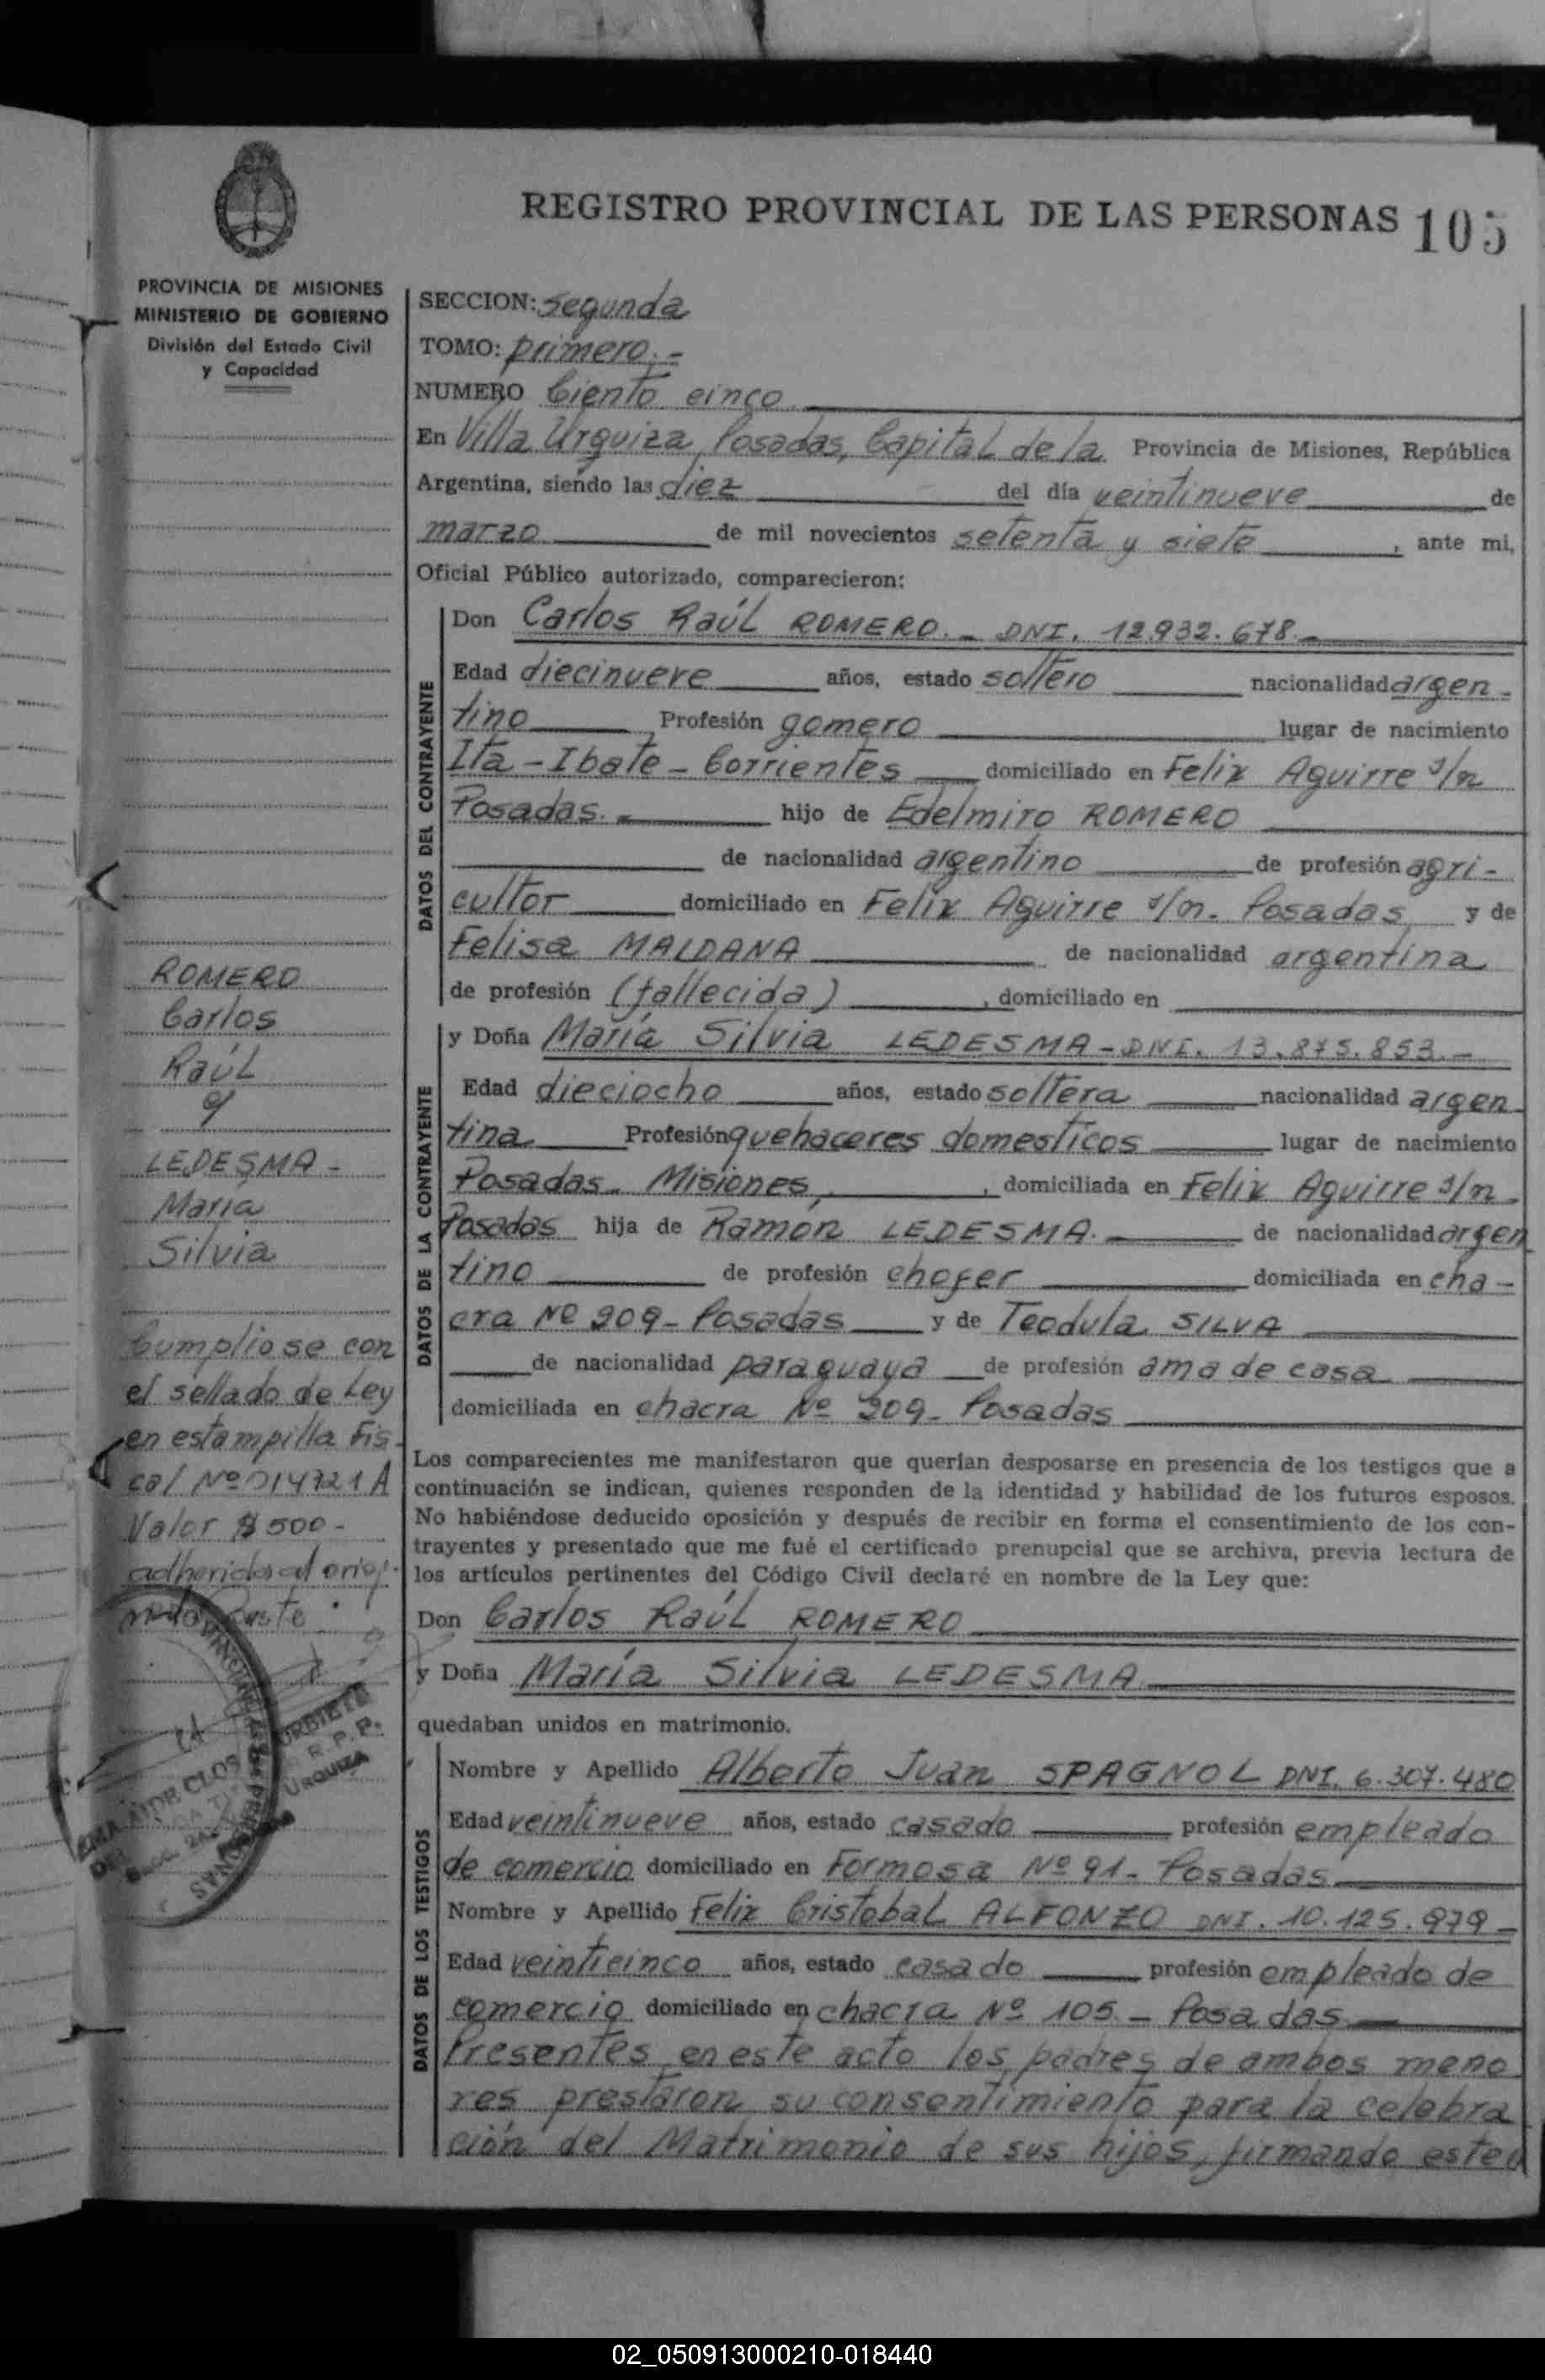 REGISTRO PROVINCIAL DE LAS PERSONAS 105
PROVINCIA DE MISIONES
MINISTERIO DE GOBIERNO
División del Estado Civil
y Capacidad
SECCION: segunda
TOMO: primero.-
NUMERO Ciento cinco
En Villa Urquiza, Posadas, Capital de la Provincia de Misiones, República
Argentina, siendo las diez del día veintinueve de
marzo de mil novecientos setenta y siete, ante mi,
Oficial Público autorizado, comparecieron:
DATOS DEL CONTRAYENTE
Don Carlos Raúl ROMERO.- DNI. 12.932.678.-
Edad diecinueve años, estado soltero nacionalidad argen-
tino, Profesión gomero lugar de nacimiento
Ita-Ibate-Corrientes domiciliado en Felix Aguirre s/n
Posadas.- hijo de Edelmiro ROMERO
de nacionalidad argentino de profesión agri-
cultor domiciliado en Felix Aguirre s/n. Posadas y de
Felisa MALDANA de nacionalidad argentina
de profesión (fallecida), domiciliado en
DATOS DE LA CONTRAYENTE
y Doña María Silvia LEDESMA-DNI. 13.875.853.-
Edad dieciocho años, estado soltera nacionalidad argen-
tina Profesión quehaceres domesticos lugar de nacimiento
Posadas. Misiones, domiciliada en Felix Aguirre s/n.
Posadas hija de Ramón LEDESMA. de nacionalidad argen
tino de profesión chofer domiciliada en cha-
cra Nº 209- Posadas y de Teodula SILVA
de nacionalidad paraguaya de profesión ama de casa
domiciliada en chacra Nº 209- Posadas
Los comparecientes me manifestaron que querían desposarse en presencia de los testigos que a
continuación se indican, quienes responden de la identidad y habilidad de los futuros esposos.
No habiéndose deducido oposición y después de recibir en forma el consentimiento de los con-
trayentes y presentado que me fué el certificado prenupcial que se archiva, previa lectura de
los artículos pertinentes del Código Civil declaré en nombre de la Ley que:
Don Carlos Raúl ROMERO
y Doña María Silvia LEDESMA
quedaban unidos en matrimonio.
DATOS DE LOS TESTIGOS
Nombre y Apellido Alberto Juan SPAGNOL DNI. 6.307.480
Edad veintinueve años, estado casado profesión empleado
de comercio domiciliado en Formosa Nº 91- Posadas
Nombre y Apellido Felix Cristobal ALFONZO DNI. 10.125.979-
Edad veinticinco años, estado casado profesión empleado de
comercio domiciliado en chacra Nº 105.- Posadas
Presentes en este acto los padres de ambos meno
res prestaron su consentimiento para la celebra
ción del Matrimonio de sus hijos, firmando estey
ROMERO
Carlos
Raúl
c/
LEDESMA-
María
Silvia
Cumpliose con
el sellado de Ley
en estampilla Fis-
cal Nº 014721 A
Valor $ 500-
adheridos al orig.
URQUIZA
02_050913000210-018440